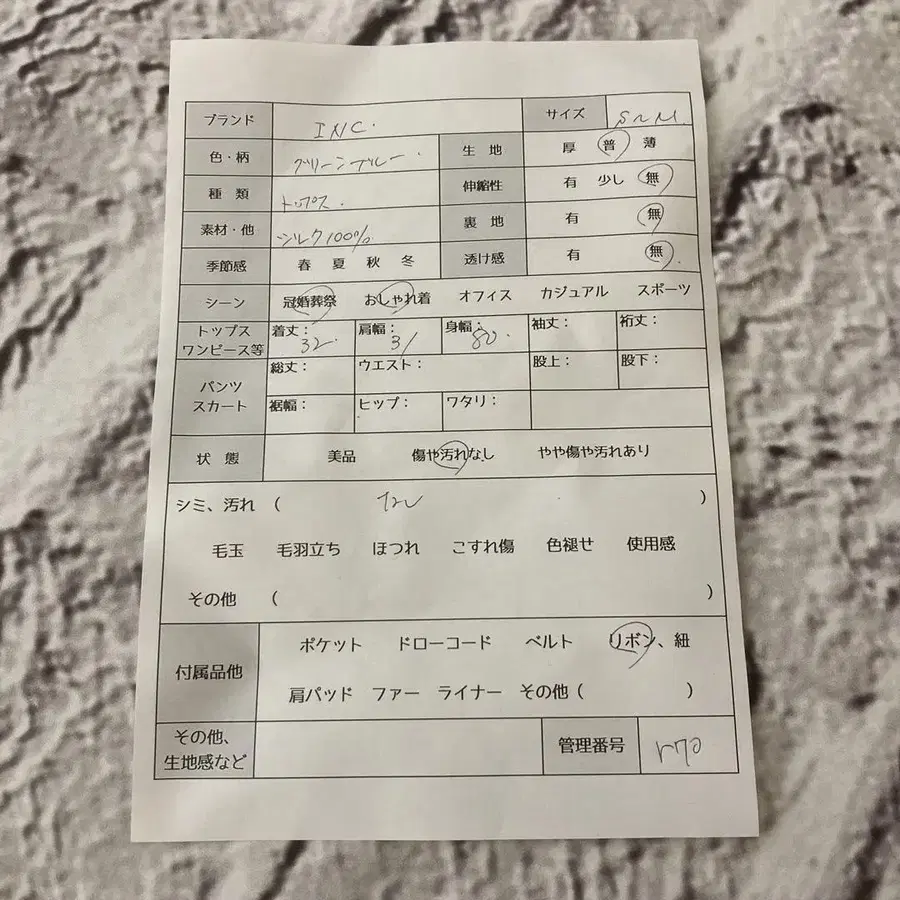 ブランド INC. サイズ S~M.
色・柄 グリーンブルー. 生地 厚 普 薄
種類 トップス. 伸縮性 有 少し 無
素材・他 シルク100% 裏地 有 無
季節感 春 夏 秋 冬 透け感 有 無
シーン 冠婚葬祭 おしゃれ着 オフィス カジュアル スポーツ
トップス ワンピース等 着丈: 32. 肩幅: 31 身幅: 80. 袖丈: 裄丈:
パンツ スカート 総丈: ウエスト: 股上: 股下:
裾幅: ヒップ: ワタリ:
状態 美品 傷や汚れなし やや傷や汚れあり
シミ、汚れ ( なし )
毛玉 毛羽立ち ほつれ こすれ傷 色褪せ 使用感
その他 ( )
付属品他 ポケット ドローコード ベルト リボン、紐
肩パッド ファー ライナー その他 ( )
その他、
生地感など 管理番号 r70